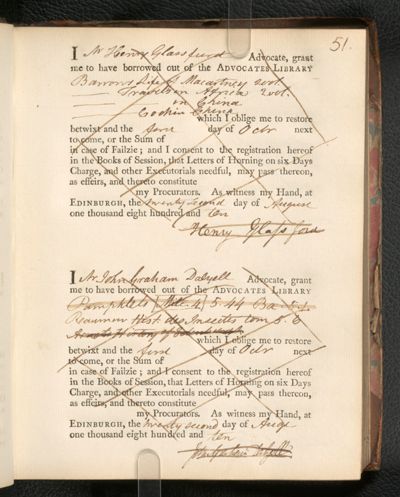 51.
I Mr Henry Glassfurd Advocate, grant
me to have borrowed out of the ADVOCATES LIBRARY
Barrows Life of Macartney 2 vol.
— Travels in Africa 2 vol.
— in China
— Cochin China
which I oblige me to restore
betwixt and the first day of Octr next
to come, or the Sum of
in case of Failzie; and I consent to the registration hereof
in the Books of Session, that Letters of Horning on six Days
Charge, and other Executorials needful, may pass thereon,
as effeirs, and thereto constitute
my Procurators. As witness my Hand, at
EDINBURGH, the twenty second day of August
one thousand eight hundred and ten
Henry Glassford
I Mr John Graham Dalyell Advocate, grant
me to have borrowed out of the ADVOCATES LIBRARY
Pamphlets 5 44
Reaumur Hist des Insectes tom 5. 6
which I oblige me to restore
betwixt and the first day of Octr next
to come, or the Sum of
in case of Failzie; and I consent to the registration hereof
in the Books of Session, that Letters of Horning on six Days
Charge, and other Executorials needful, may pass thereon,
as effeirs, and thereto constitute
my Procurators. As witness my Hand, at
EDINBURGH, the twenty second day of Augt
one thousand eight hundred and ten
John Graham Dalyell